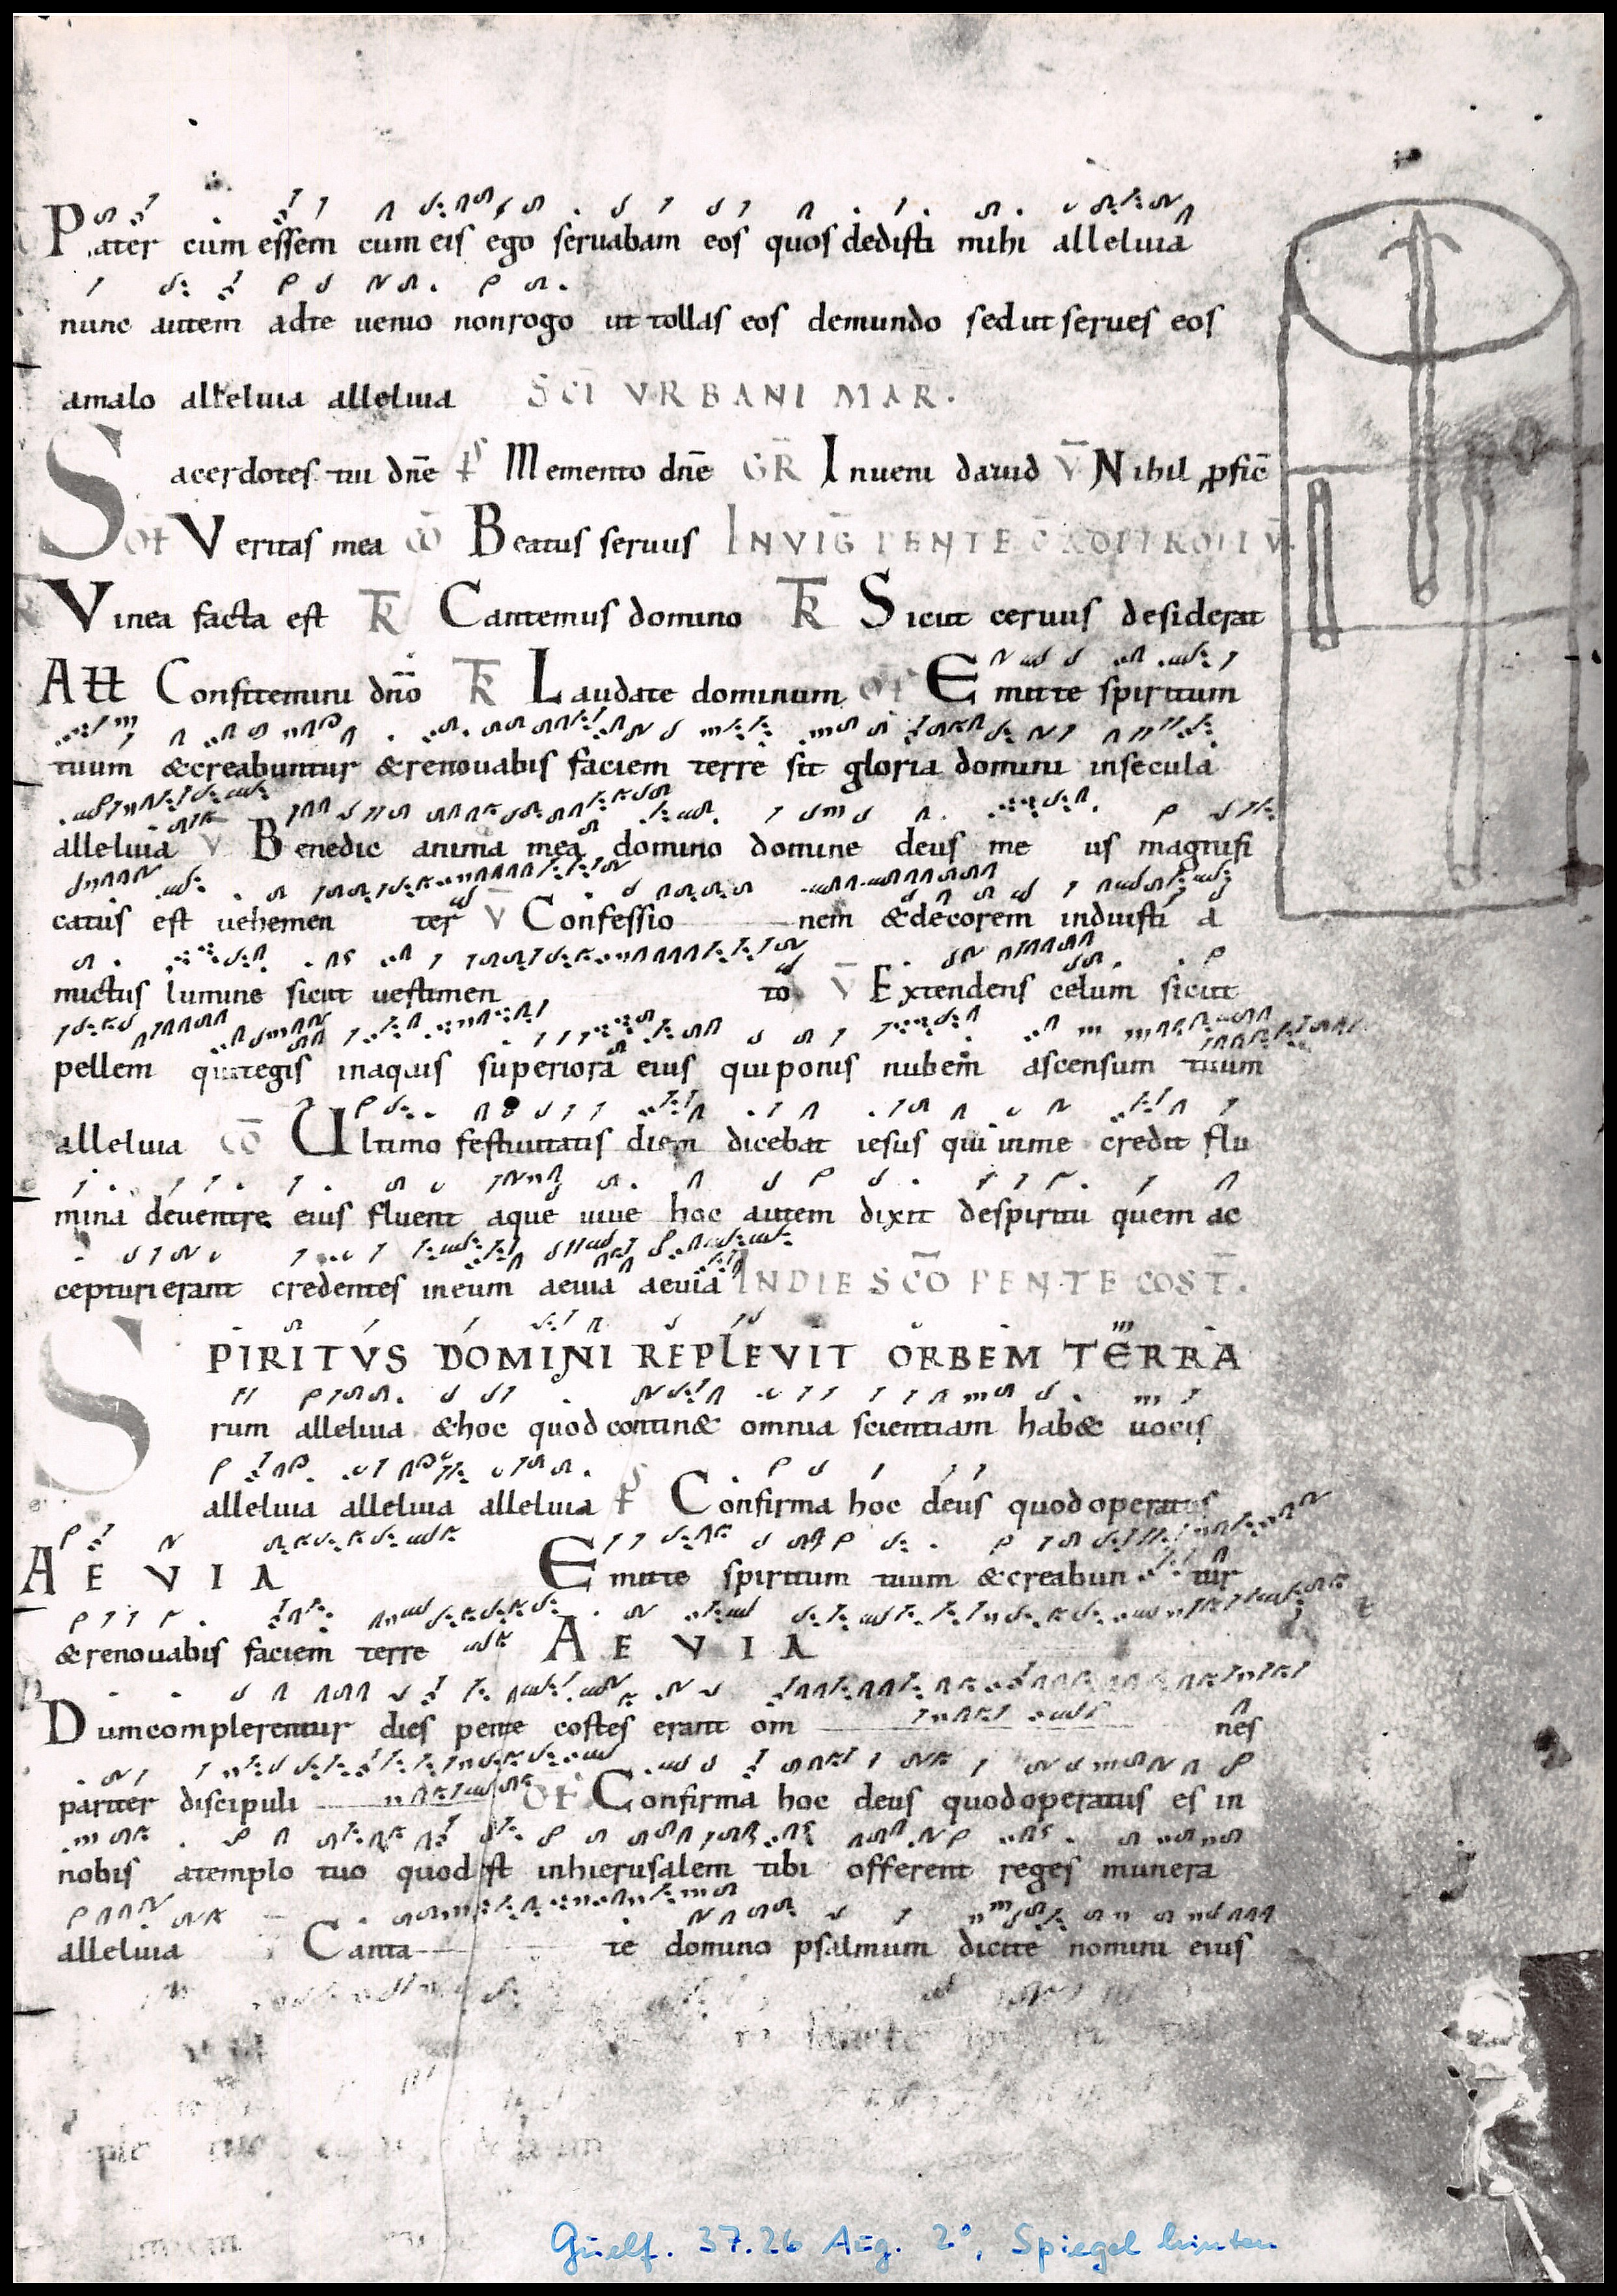 Pater cum essem cum eis ego seruabam eos quos dedisti mihi alleluia
nunc autem adte uenio nonrogo ut tollas eos demundo sedut serues eos
amalo alleluia alleluia SCI VRBANI MAR.
Sacerdotes tui dn̄e Memento dn̄e GR Inueni dauid V̄ Nihil ꝓfic̄
Of Veritas mea CŌ Beatus seruus INVIG PENTEC
Vinea facta est TR Cantemus domino TR Sicut ceruus desiderat
All Confitemini dn̄o TR Laudate dominum Of Emitte spiritum
tuum &creabuntur &renouabis faciem terre sit gloria domini insecula
alleluia V Benedic anima mea domino domine deus me us magnifi
catus est uehemen ter V Confessio nem &decorem induisti a
mictus lumine sicut uestimen to V Extendens celum sicut
pellem quitegis inaquis superiora eius quiponis nubem ascensum tuum
alleluia CŌ Ultimo festiuitatis diem dicebat iesus qui inme credit flu
mina deuentre eius fluent aque uiue hoc autem dixit despiritu quem ac
cepturierant credentes ineum aeuia aeuia INDIE SCŌ PENTECOST.
SPIRITVS DOMINI REPLEVIT ORBEM TERRA
rum alleluia &hoc quod contin& omnia scientiam hab& uocis
alleluia alleluia alleluia Confirma hoc deus quod operatus
AEVIA Emitte spiritum tuum &creabun tur
&renouabis faciem terre AEVIA
Dumcomplerentur dies pente costes erant om nes
pariter discipuli Of Confirma hoc deus quodoperatus es in
nobis atemplo tuo quod est inhierusalem tibi offerent reges munera
alleluia Canta te domino psalmum dicite nomini eius
Guelf. 37.26 Aug. 2°, Spiegel hinten